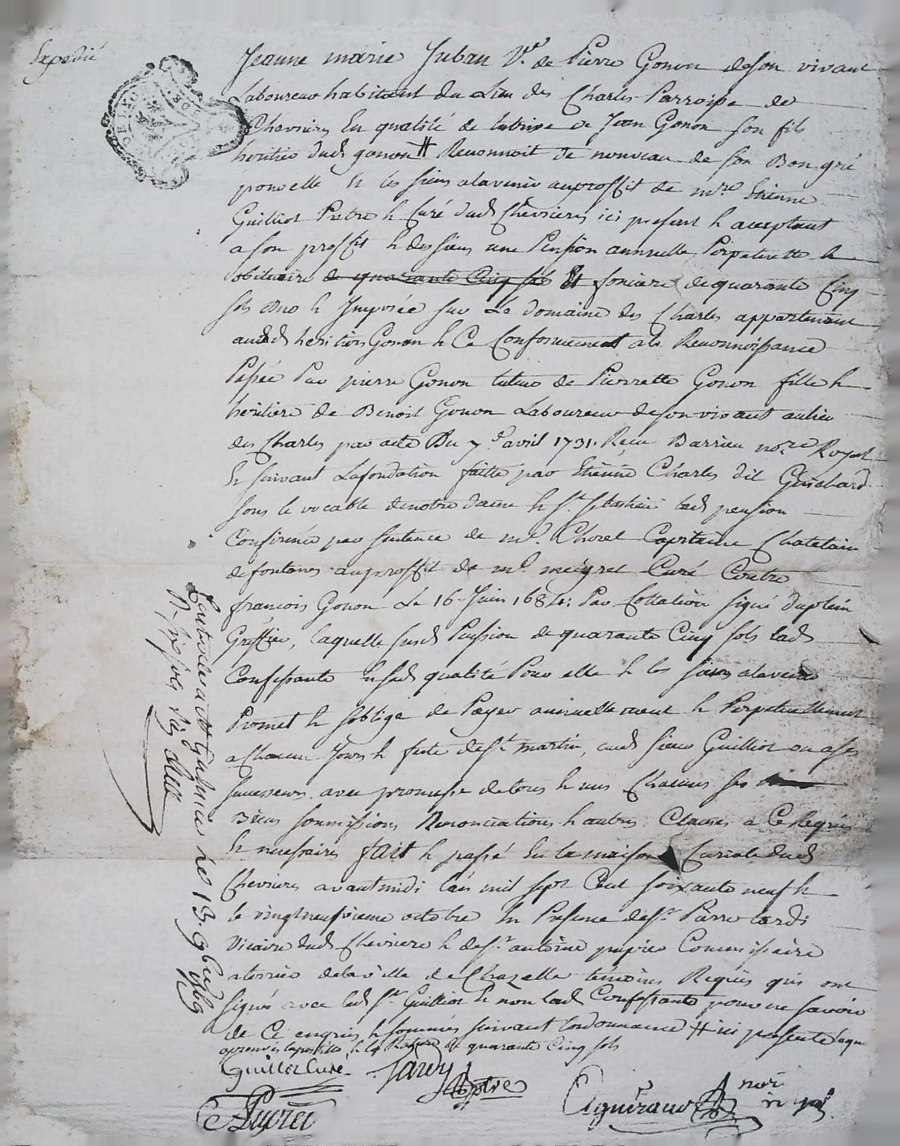 Expedié
Jeanne marie Juban V.e de Pierre Gonon de son vivant
Laboureur habitant du Lieu des Charles Parroisse de
Chevrieres En qualité de tutrice de Jean Gonon son fils
heritier dud. gonon # Reconnoit de nouveau de son Bon gré
pour elle & les siens alavenir auproffit de m.re Etienne
Guilliot Pretre & Curé dud. Chevrieres ici present & acceptant
a son proffit & des siens une Pension annuelle Perpetuelle &
de quarante Cinq sols & fonciere de quarante Cinq
sols due & Imposée sur Le domaine des Charles appartenant
auxd. heritiers Gonon & Ce Conformement ala Reconnoissance
Passée Par pierre Gonon tuteur de Pierrette Gonon fille &
heritiere de Benoit Gonon Laboureur de son vivant aulieu
des Charles par acte Du 7.e avril 1731. Recu Barrieu no.re Royal
Et suivant Lafondation faitte par Etienne Charles dit Guichard
sous le vocable denotre dame & S.t sebastien lad. pension
Confirmée par sentence de m.r Choret Capitaine Chatelain
de fontanes auproffit de m.r meigret Curé Contre
francois Gonon Le 16. Juin 1684. Par Collation signé Duplein
Greffier, laquelle susd. Pension de quarante Cinq sols lad.
Confessante Esd. qualité Pour elle & les siens alavenir
Promet & s'oblige de Payer annuellement & Perpetuellement
a Chacun Jour & feste de S.t martin, aud. sieur Guilliot ou a ses
successeurs avec promesse detous & uns Chacuns ses
Biens soumissions Renonciations & autres Clauses a Ce Requises
& necessaires fait & passé En la maison Curiale dud.
Chevrieres avant midi L'an mil sept Cent soixante neuf &
le vingtneufvieme octobre En Presence de S.r Pierre tardi
Vicaire dud. Chevriere & de S.r antoine Commissaire
a terrier delaville de Chazelle temoins Requis qui ont
signé avec led. S.r Guilliot & non lad. Confessante pour ne savoir
de Ce enquise & sommée suivant Lordonnance # ici presente
approuvés lapostille, & la Rature de quarante Cinq sols
Guilliot Curé
Tardy
Ptre
no.re
Roy.al
Controllé a St Galmier Le 13. 9bre 1769